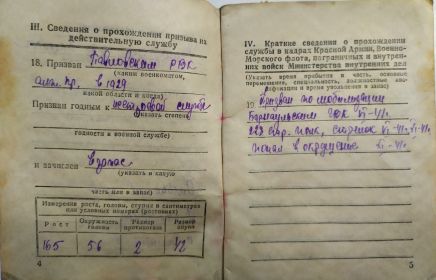 III. Сведения о прохождении призыва на
действительную службу
18. Призван Павловским РВК
(каким военкоматом,
Алт. кр., в 1929
какой области и когда)
Призван годным к нестроевой службе
(указать степень
годности к военной службе)
и зачислен в запас
(указать в какую
часть или в запас)
Измерения роста, головы, ступни в сантиметрах
или условных номерах (ростовках)
Рост
Окружность головы
Размер противогаза
Размер обуви
165
56
2
42
4
IV. Краткие сведения о прохождении
службы в кадрах Красной Армии, Военно-
Морского флота, пограничных и внутрен-
них войск Министерства внутренних дел
(Указать время прибытия в часть, основные
перемещения, специальность, должностные
и время увольнения в запас)
19. Призван по мобилизации
Барнаульским ГВК VI-41г.
223 стр. полк, стрелок VI-41г. VI-41г.
попал в окружение VI-41г.
5